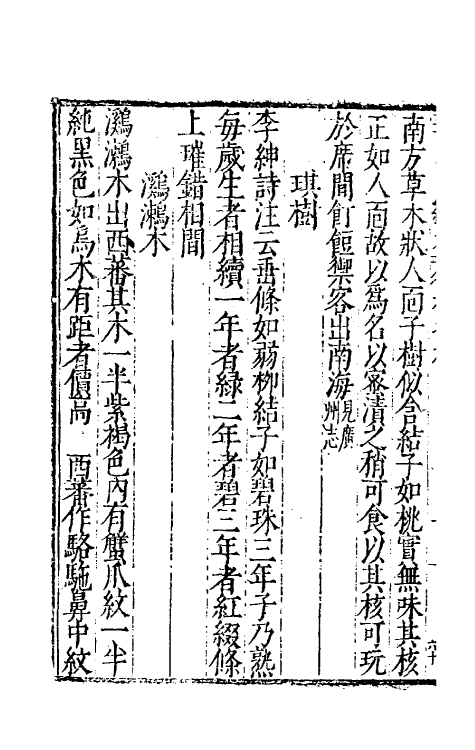 南方草木狀人面子樹似含結子如桃實無味其核
正如人面故以為名以蜜漬之稍可食以其核可玩
於席間飣餖禦客出南海見廣州志
琪樹
李紳詩注云垂條如弱柳結子如碧珠三年子乃熟
每歲生者相續一年者綠二年者碧三年者紅綴條
上璀錯相間
鸂鶒木
鸂鶒木出西蕃其木一半紫褐色內有蟹爪紋一半
純黑色如烏木有距者價高 西蕃作駱駞鼻中紋